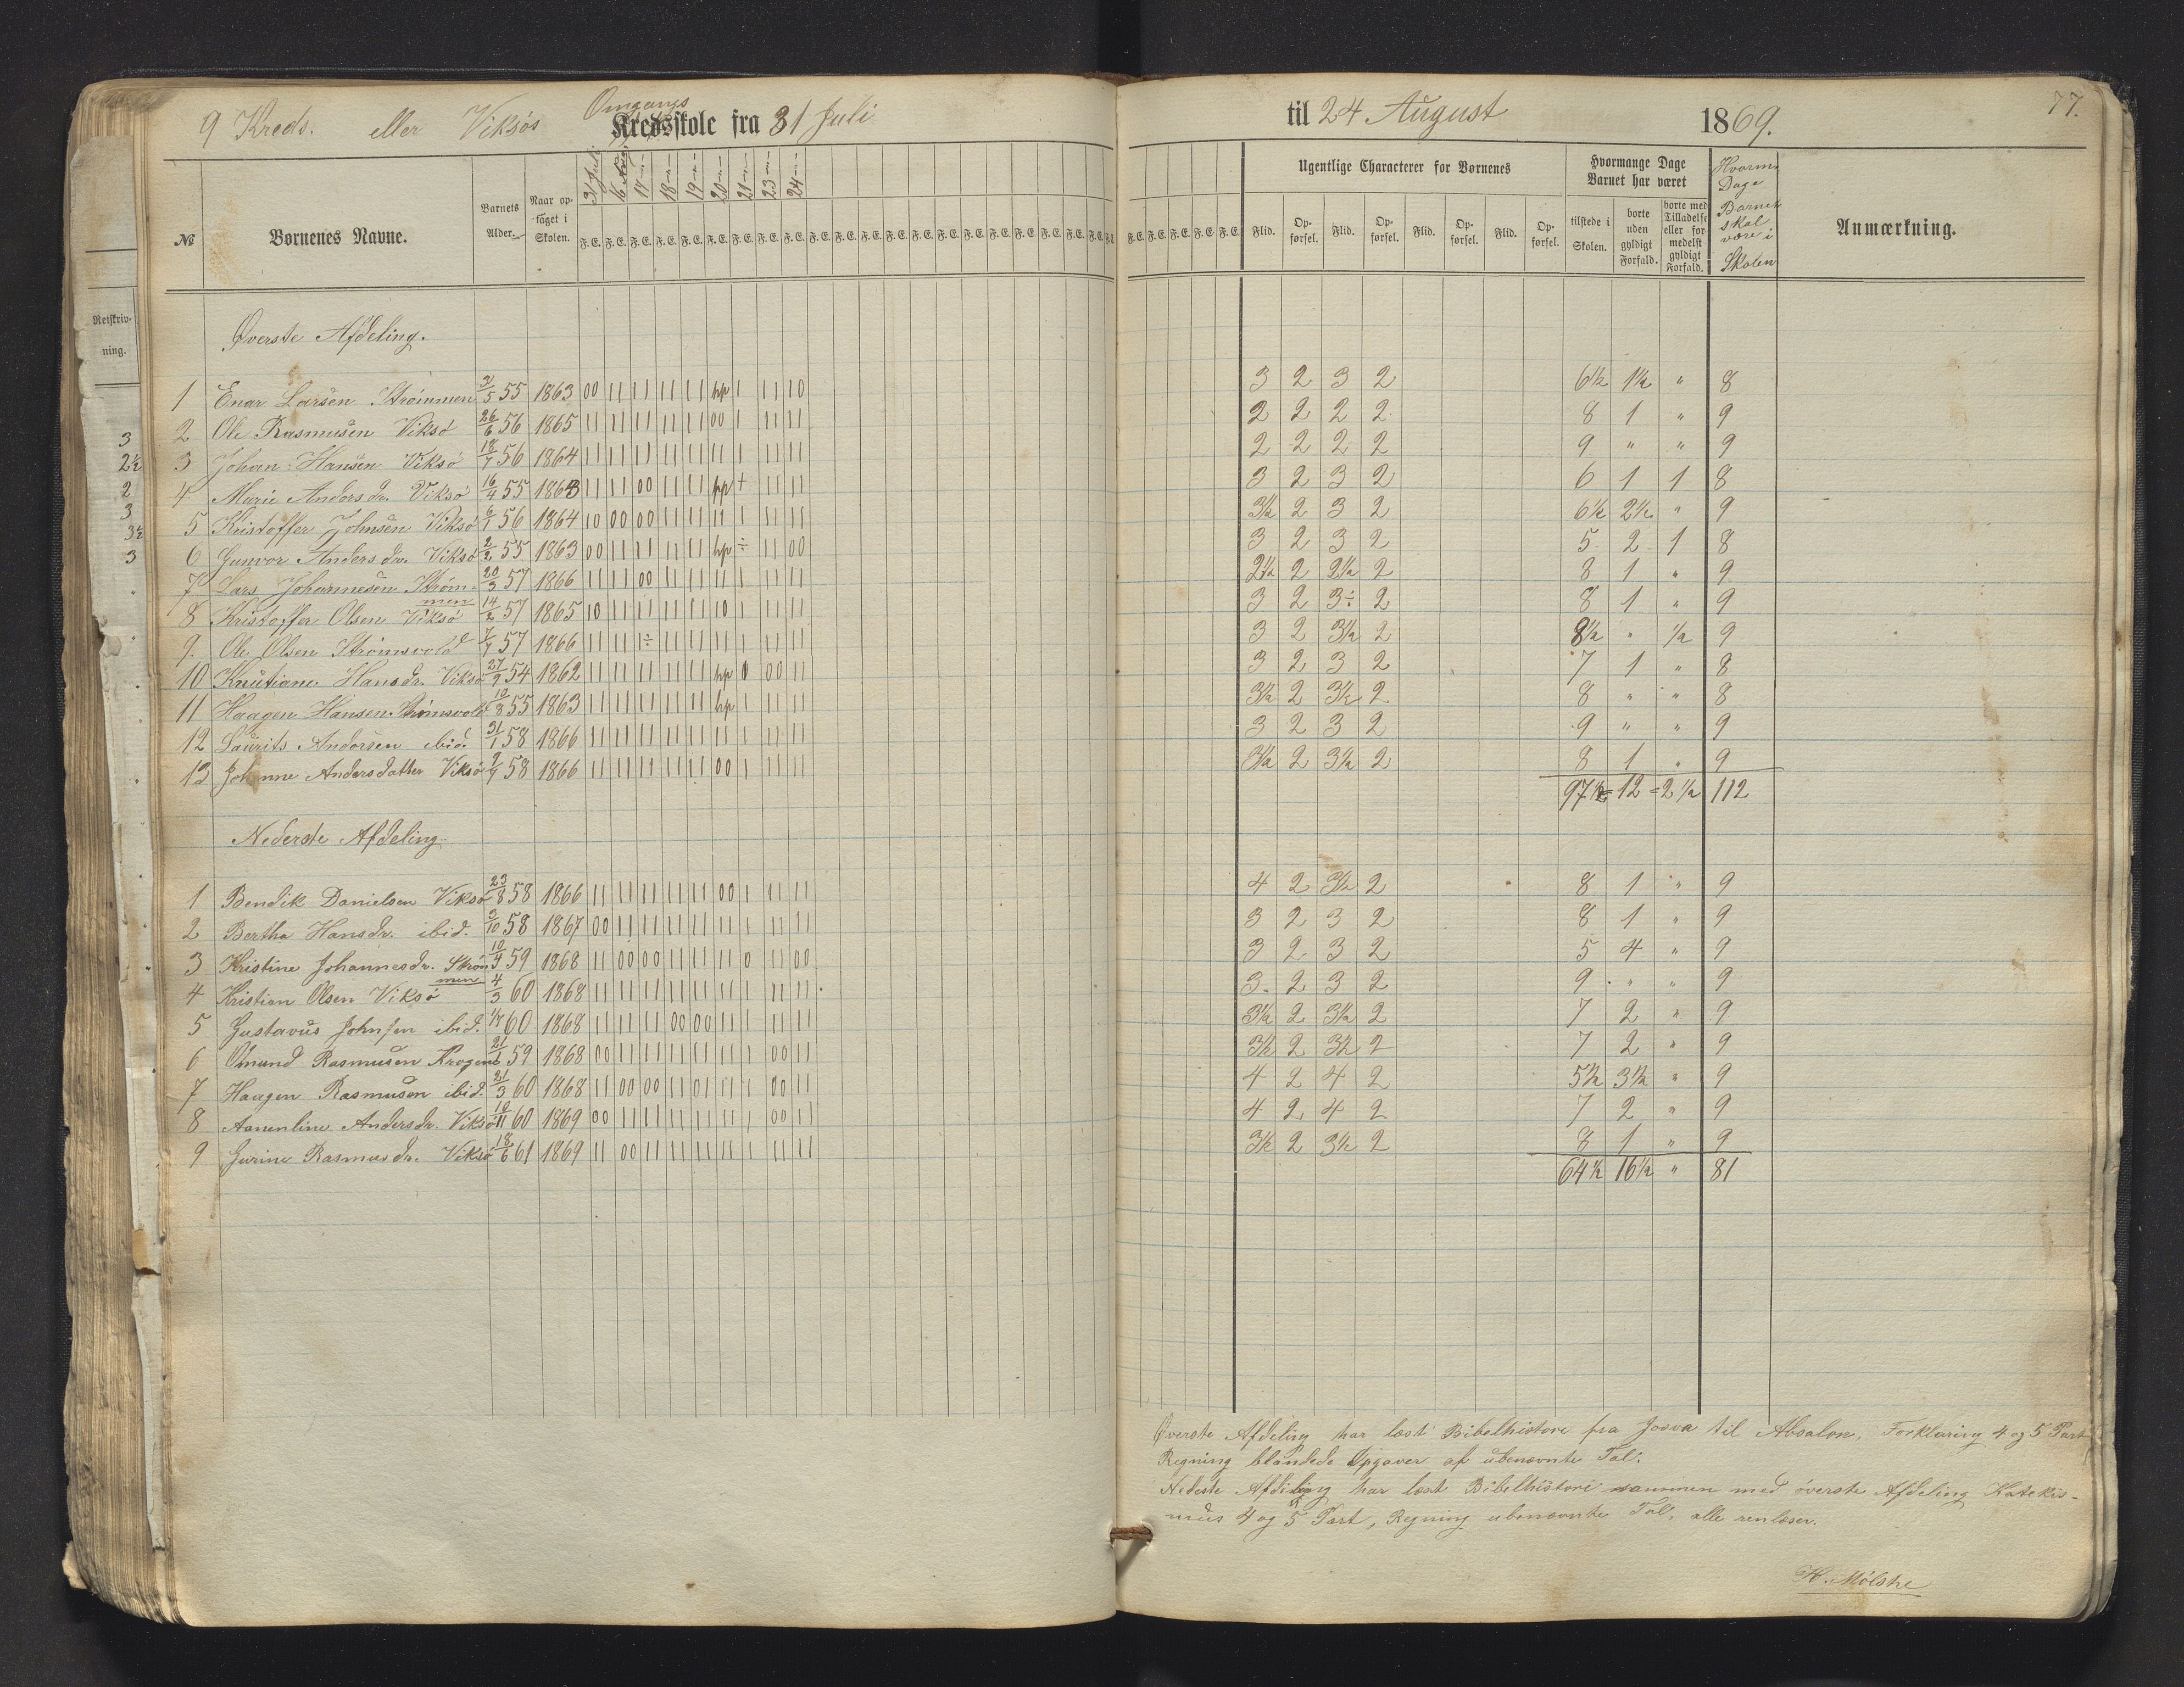 9 Kreds. eller Viksøs Omgangs Kredsskole fra 31 Juli til 24 August 1869. 77.
№ Børnenes Navne. Barnets Alder. Naar op-taget i Skolen. 31 Juli 16 Aug 17 18 19 20 21 23 24
Ugentlige Characterer for Børnenes Hvormange Dage Barnet har været Hvorm. Dage Barnet skal være i Skolen Anmærkning.
F.E. F.E. F.E. F.E. F.E. F.E. F.E. F.E. F.E. F.E. F.E. F.E. F.E. F.E. F.E. F.E. F.E. F.E. F.E. F.E.
Flid. Op-førsel. Flid. Op-førsel. Flid. Op-førsel. Flid. Op-førsel. tilstede i Skolen. borte uden gyldigt Forfald. borte med Tilladelse eller for-medelst gyldigt Forfald.
Retskriv-
ning.
3
2½
2
3
3½
3
Øverste Afdeling.
1 Enar Larsen Strømmen 3/5 55 1863 00 11 11 11 11 hp 1 11 10 3 2 3 2 6½ 1½ " 8
2 Ole Rasmusen Viksø 26/6 56 1865 11 11 11 11 11 00 1 11 11 2 2 2 2 8 1 " 9
3 Johan Hansen Viksø 18/7 56 1864 11 11 11 11 11 11 1 11 11 2 2 2 2 9 " " 9
4 Marie Andersdr. Viksø 16/4 55 1863 11 11 00 11 11 hp + 11 11 3 2 3 2 6 1 1 8
5 Kristoffer Johnsen Viksø 6/1 56 1864 10 00 00 11 11 11 1 11 11 3½ 2 3 2 6½ 2½ " 9
6 Gunvor Andersdr. Viksø 2/2 55 1863 00 11 11 11 11 hp ÷ 11 00 3 2 3 2 5 2 1 8
7 Lars Johannesen Strøm-men 20/3 57 1866 11 11 00 11 11 11 1 11 11 2½ 2 2½ 2 8 1 " 9
8 Kristoffer Olsen Viksø 14/2 57 1865 10 11 11 11 11 10 1 11 11 3 2 3÷ 2 8 1 " 9
9. Ole Olsen Strømsvold 7/7 57 1866 11 11 1÷ 11 11 11 1 11 11 3 2 3½ 2 8½ " ½ 9
10 Knutiane Hansdr. Viksø 27/9 54 1862 11 11 11 11 11 hp 0 00 11 3 2 3 2 7 1 " 8
11 Haagen Hansen Strømsvold 10/8 55 1863 11 11 11 11 11 hp 1 11 11 3½ 2 3½ 2 8 " " 8
12 Laurits Andersen ibid. 31/1 58 1866 11 11 11 11 11 11 1 11 11 3 2 3 2 9 " " 9
13 Johanne Andersdatter Viksø 2/7 58 1866 11 11 11 11 11 00 1 11 11 3½ 2 3½ 2 8 1 " 9
97½ = 12 = 2½ 112
Nederste Afdeling.
1 Bendik Danielsen Viksø 23/8 58 1866 11 11 11 11 11 00 1 11 11 4 2 3½ 2 8 1 " 9
2 Bertha Hansdr. ibid. 3/10 58 1867 00 11 11 11 11 11 1 11 11 3 2 3 2 8 1 " 9
3 Kristine Johannesdr. Strøm-men 10/4 59 1868 11 00 00 11 11 11 0 11 00 3 2 3 2 5 4 " 9
4 Kristian Olsen Viksø 4/3 60 1868 11 11 11 11 11 11 1 11 11 3 2 3 2 9 " " 9
5 Gustavus Johnsen ibid. 60 1868 11 11 11 00 00 11 1 11 11 3½ 2 3½ 2 7 2 " 9
6 Omund Rasmusen 59 1868 00 11 11 11 11 11 1 00 11 3½ 2 3½ 2 7 2 " 9
7 Haagen Rasmusen ibid. 21/3 60 1868 11 00 00 11 01 11 1 00 11 4 2 4 2 5½ 3½ " 9
8 Aanenline Andersdr. Viksø 10/11 60 1869 00 11 11 11 11 11 1 00 11 4 2 4 2 7 2 " 9
9 Gurine Rasmusdr. Viksø 18/6 61 1869 11 00 11 11 11 11 1 11 11 3½ 2 3½ 2 8 1 " 9
64½ 16½ " 81
Øverste Afdeling har læst Bibelhistore fra Josva til Absalon, Forklaring 4 og 5 Part
Regning blandede Opgaver af ubenævnte Tal.
Nedeste Afdeling har læst Bibelhistori sammen med øverste Afdeling Katekis-
mus 4 og 5 Part, Regning ubenævnte Tal, alle renlæser.
H. Mølstre